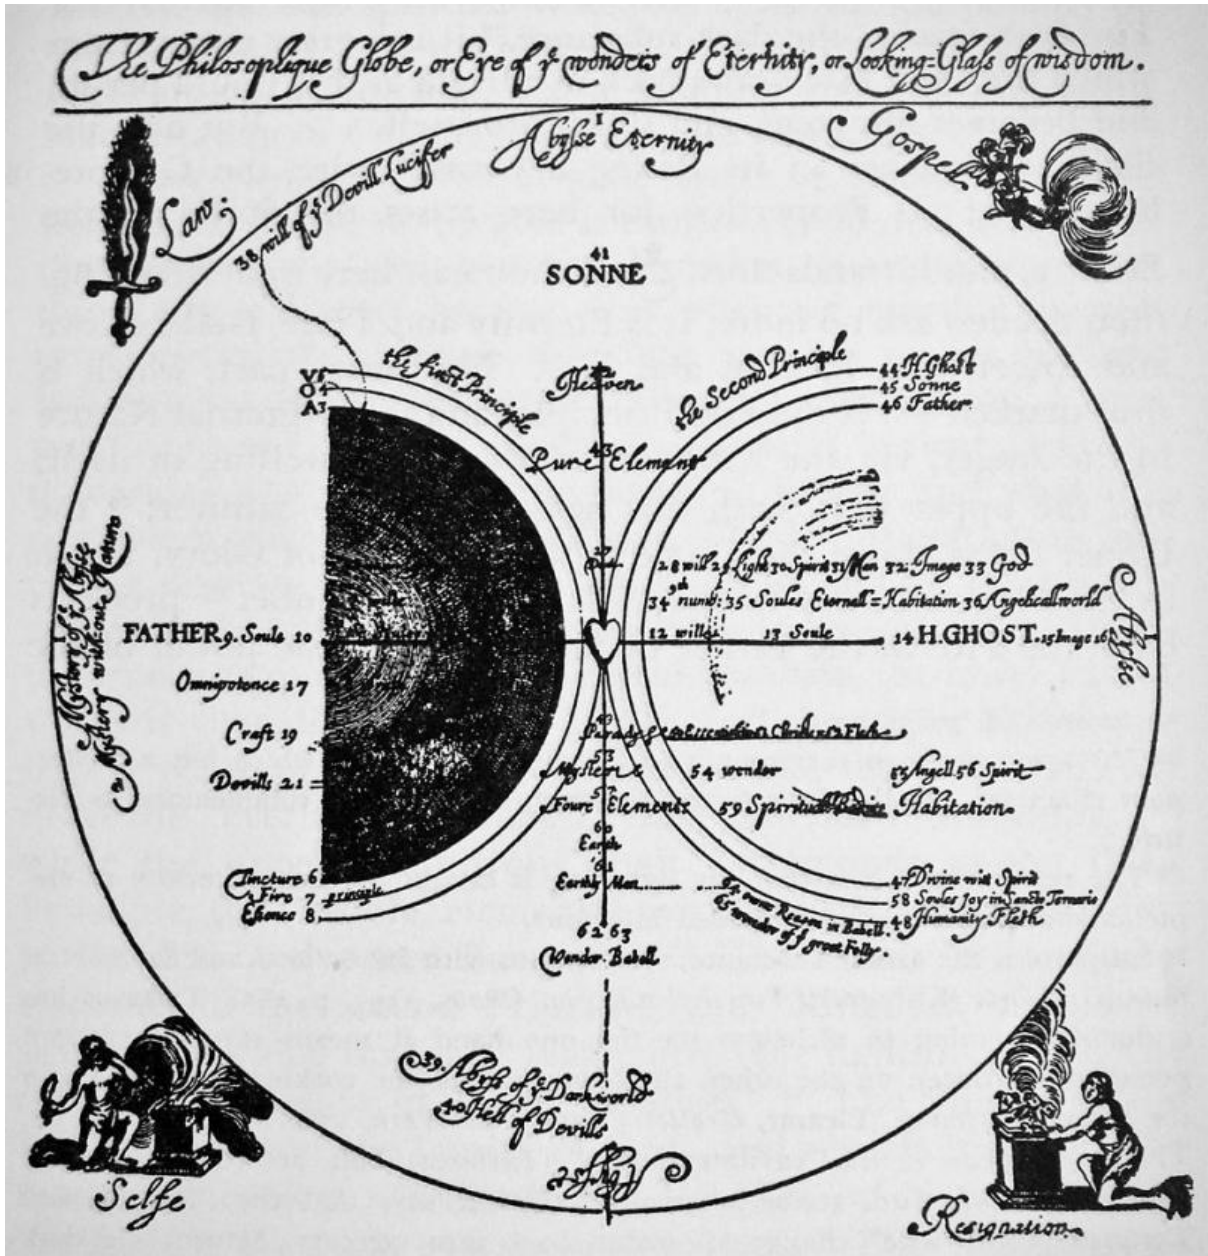 The Philosophique Globe, or Eye of yͤ wonders of Eternity, or Looking=Glass of wisdom.
Abysse 1 Eternity
Law:
Gospel
38 will of yͤ Devill Lucifer
41
SONNE
the first Principle
the Second Principle
V5
O4
A3
42
Heaven
44 H. Ghost
45 Sonne
46 Father
43
Pure Element
27
28 will 29 Light 30 Spirit 31 Man 32 Image 33 God
34 numb: 35 Soules Eternall=Habitation 36 Angelicall world
FATHER. 9. Soule 10
12 will 13 Soule 14 H. GHOST. 15 Image 16
Abysse
Mystery of yͤ Abysse
2 Mystery without Nature
Omnipotence 17
Craft 19
Devills 21
49
Flesh
53
Mysterie 54 wonder 55 Angell 56 Spirit
57
Foure Elements 59 Spirituall Habitation
60
Earth
61
Earthly Man
Tincture 6
Fire 7 principle
Essence 8
47 Divine will Spirit
58 Soules Joy in Sancto Ternario
48 Humanity Flesh
64 owne Reason in Babell
65 wonder of yͤ great Folly
62 63
Wonder Babell
39 Abyss of yͤ Darkworld
40 Hell of Devills
Abysse
Selfe
Resignation